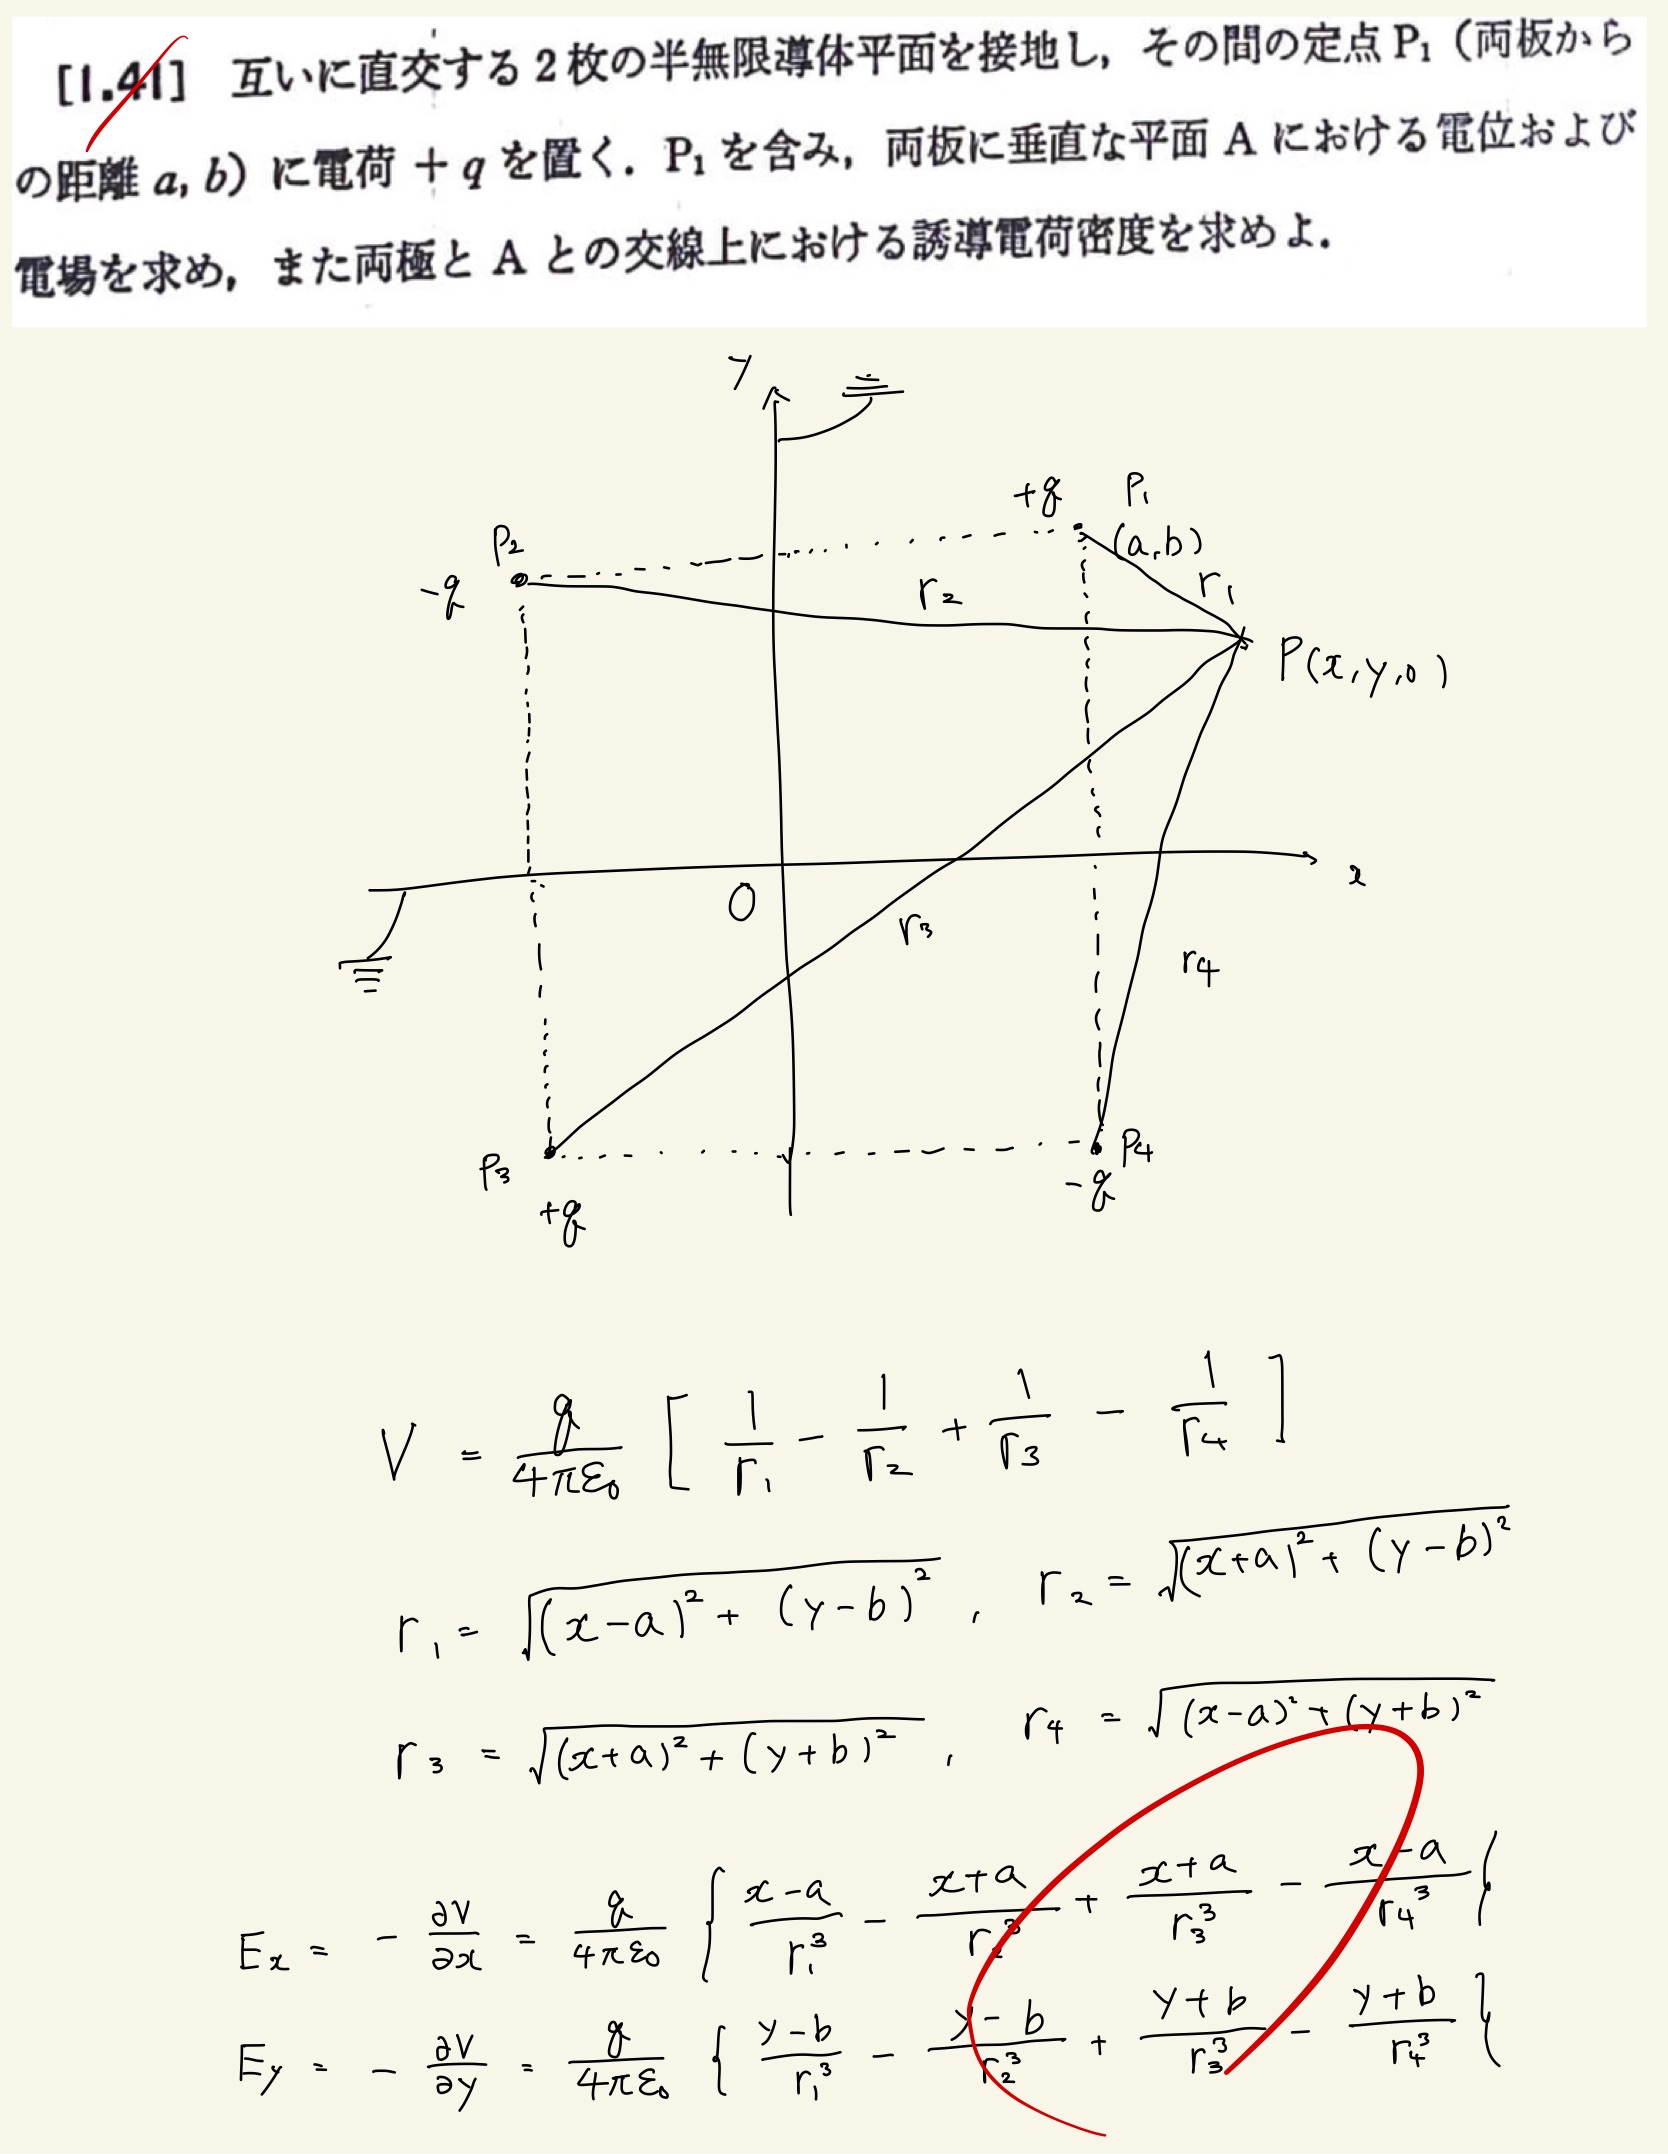 [1.41] 互いに直交する2枚の半無限導体平面を接地し,その間の定点P₁(両板から
の距離 a, b)に電荷 +q を置く.P₁を含み,両板に垂直な平面 A における電位および
電場を求め,また両極と A との交線上における誘導電荷密度を求めよ.
y
+q P₁
(a,b)
P₂
-q
r₂
r₁
P(x,y,0)
x
O
r₃
r₄
P₃
+q
P₄
-q
V = q/4πε₀ [ 1/r₁ - 1/r₂ + 1/r₃ - 1/r₄ ]
r₁ = √((x-a)² + (y-b)²) , r₂ = √((x+a)² + (y-b)²)
r₃ = √((x+a)² + (y+b)²) , r₄ = √((x-a)² + (y+b)²)
Ex = - ∂V/∂x = q/4πε₀ { (x-a)/r₁³ - (x+a)/r₂³ + (x+a)/r₃³ - (x-a)/r₄³ }
Ey = - ∂V/∂y = q/4πε₀ { (y-b)/r₁³ - (y-b)/r₂³ + (y+b)/r₃³ - (y+b)/r₄³ }